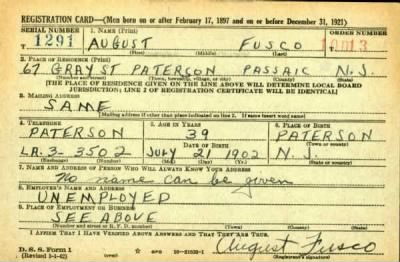 REGISTRATION CARD—(Men born on or after February 17, 1897 and on or before December 31, 1921)
SERIAL NUMBER 1. NAME (Print) ORDER NUMBER
1291 AUGUST FUSCO 10013
(First) (Middle) (Last)
2. PLACE OF RESIDENCE (Print)
67 GRAY ST PATERSON PASSAIC N.J.
(Number and street) (Town, township, village, or city) (County) (State)
[THE PLACE OF RESIDENCE GIVEN ON THE LINE ABOVE WILL DETERMINE LOCAL BOARD
JURISDICTION; LINE 2 OF REGISTRATION CERTIFICATE WILL BE IDENTICAL]
3. MAILING ADDRESS
SAME
[Mailing address if other than place indicated on line 2. If same insert word same]
4. TELEPHONE 5. AGE IN YEARS 6. PLACE OF BIRTH
PATERSON 39 PATERSON
DATE OF BIRTH (Town or county)
LA. 3-3502 JULY 21 1902 N.J.
(Exchange) (Number) (Mo.) (Day) (Yr.) (State or country)
7. NAME AND ADDRESS OF PERSON WHO WILL ALWAYS KNOW YOUR ADDRESS
No name can be given
8. EMPLOYER'S NAME AND ADDRESS
UNEMPLOYED
9. PLACE OF EMPLOYMENT OR BUSINESS
SEE ABOVE
(Number and street or R. F. D. number) (Town) (County) (State)
I AFFIRM THAT I HAVE VERIFIED ABOVE ANSWERS AND THAT THEY ARE TRUE.
D. S. S. Form 1
(Revised 1-1-42) (over) GPO 16-21630-1 August Fusco
(Registrant's signature)